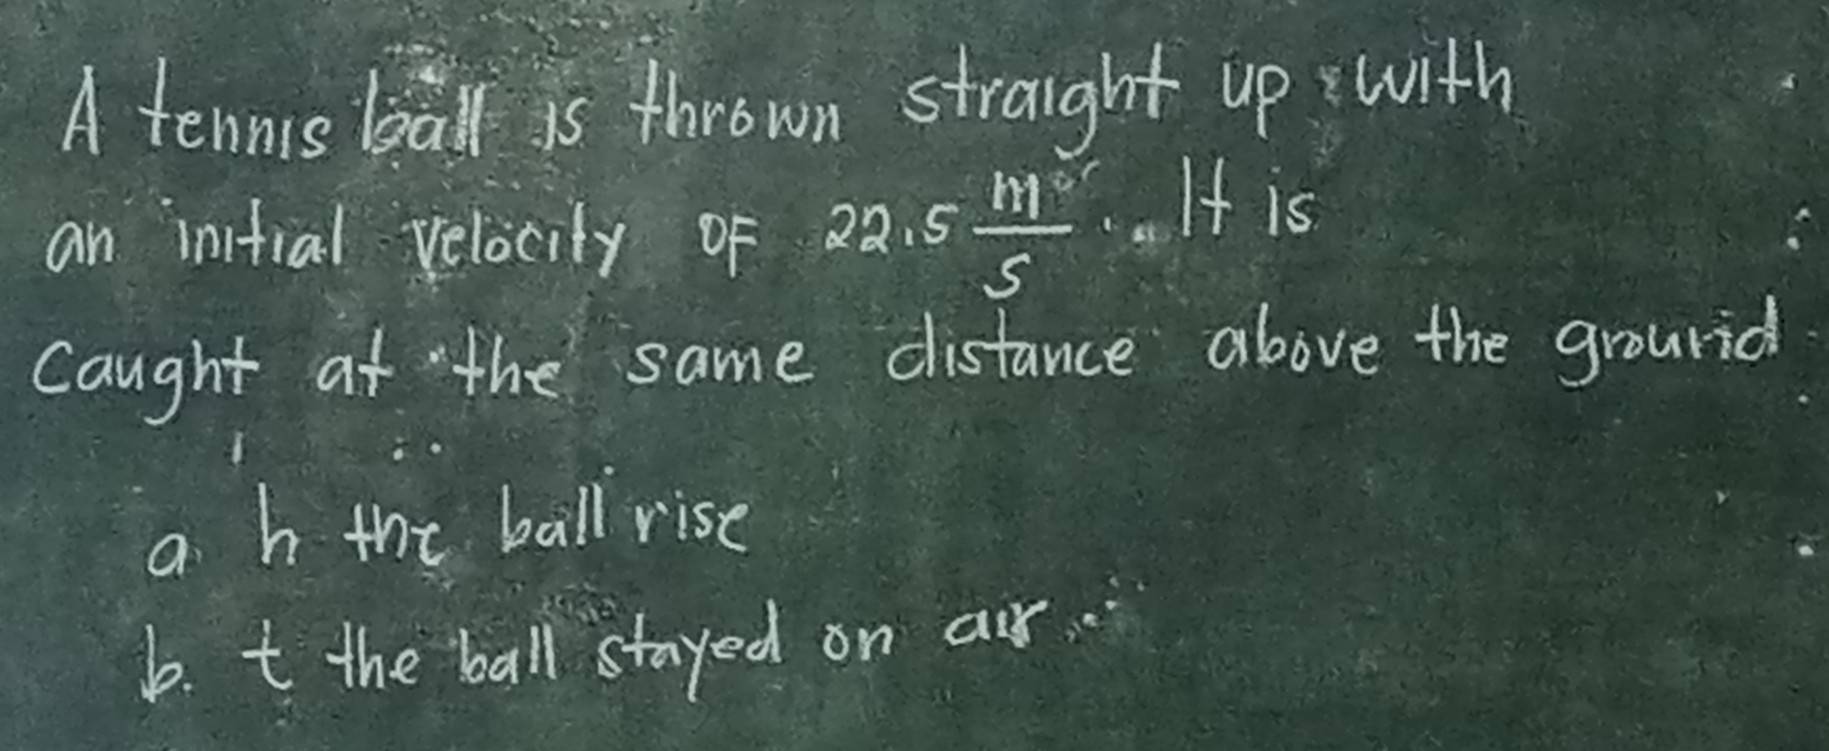 A tennis ball is thrown straight up with
an initial velocity OF 22.5 m/s. It is
caught at the same distance above the ground
a h the ball rise
b. t the ball stayed on air